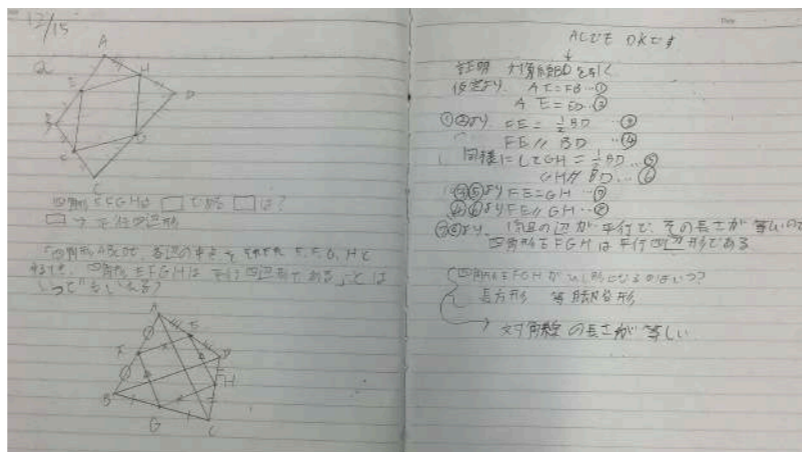 12/15
Q
A
H
E
D
B
C
四角形EFGHは□である □は?
□→平行四辺形
「四角形ABCDで、各辺の中点をそれぞれ E, F, G, Hと
すると、四角形EFGHは平行四辺形である」とは
いつでもいえる?
A
E
F
D
H
B
G
C
ACでもOKです
↓
証明 対角線BDを引く
仮定より、AF=FB…①
AE=ED…②
①②より FE=½BD …③
FE//BD …④
同様にしてGH=½BD…⑤
GH//BD…⑥
③⑤よりFE=GH…⑦
④⑥よりFE//GH…⑧
⑦⑧より、1組の辺が平行で、その長さが等しいので
四角形EFGHは平行四辺形である
四角形EFGHがひし形になるのはいつ?
長方形 等脚台形
→対角線の長さが等しい